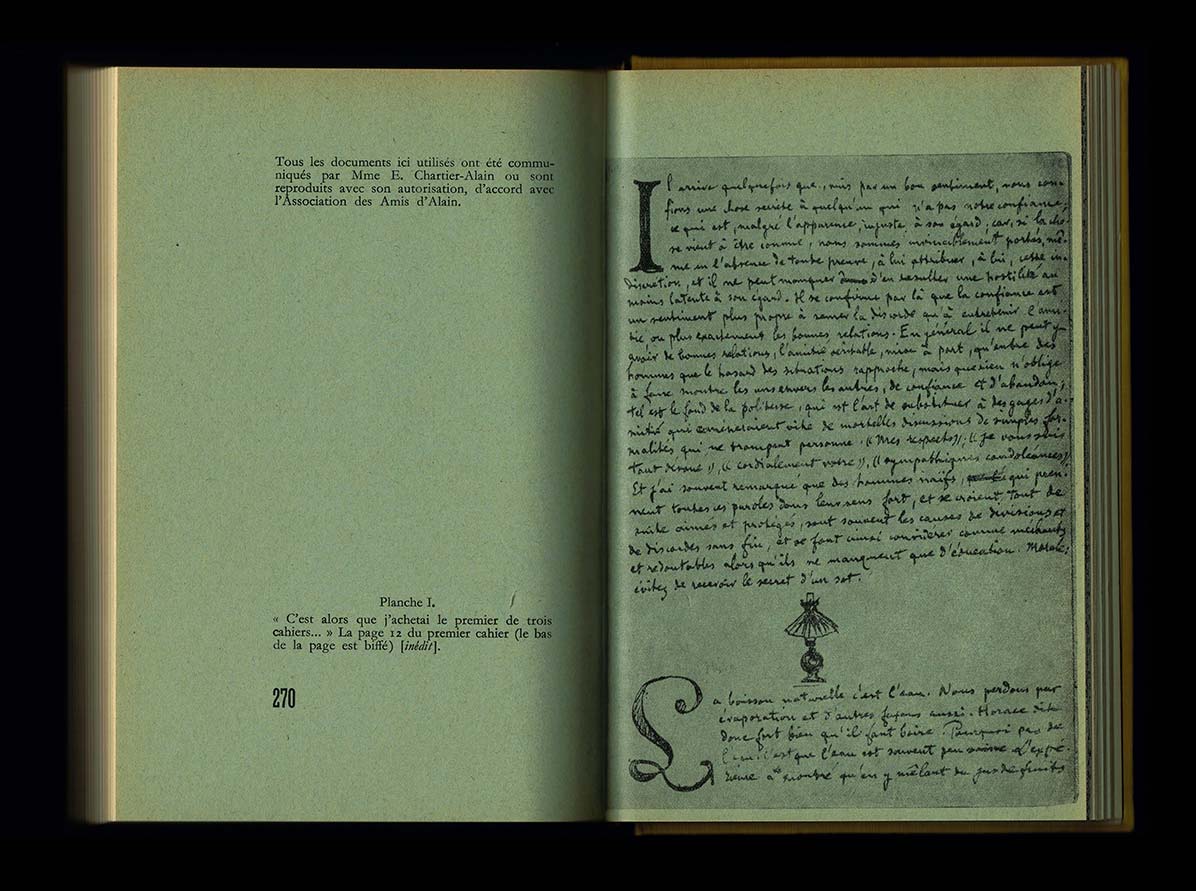 Tous les documents ici utilisés ont été commu-
niqués par Mme E. Chartier-Alain ou sont
reproduits avec son autorisation, d'accord avec
l'Association des Amis d'Alain.
Planche I.
« C'est alors que j'achetai le premier de trois
cahiers... » La page 12 du premier cahier (le bas
de la page est biffé) [inédit].
270
Il arrive quelquefois que, mus par un bon sentiment, nous con-
fions une chose secrète à quelqu'un qui n'a pas notre confiance;
ce qui est, malgré l'apparence, injuste, à son égard; car, si la cho-
se vient à être connue, nous sommes invinciblement portés, mê-
me en l'absence de toute preuve, à lui attribuer, à lui, cette in-
discrétion, et il ne peut manquer d'en résulter une hostilité au
moins latente à son égard. Il se confirme par là que la confiance est
un sentiment plus propre à semer la discorde qu'à entretenir l'ami-
tié ou plus exactement les bonnes relations. En général il ne peut y
avoir de bonnes relations, l'amitié véritable, mise à part, qu'entre des
hommes que le hasard des situations rapproche, mais que rien n'oblige
à faire montre les uns envers les autres, de confiance et d'abandon;
tel est le fond de la politesse, qui est l'art de substituer à des gages d'a-
mitié qui emmèneraient vite de mortelles discussions de simples for-
malités qui ne trompent personne. « Mes respects », « je vous suis
tout dévoué », « cordialement votre », « sympathiques condoléances »
Et j'ai souvent remarqué que des hommes naïfs, qui pren-
nent toutes ces paroles dans leur sens fort, et se croient, tout de
suite aimés et protégés, sont souvent les causes de divisions et
de discordes sans fin, et se font ainsi considérer comme méchants
et redoutables alors qu'ils ne manquent que d'éducation. Morale:
évitez de recevoir le secret d'un sot.
La boisson naturelle c'est l'eau. Nous perdons par
évaporation et d'autres façons aussi. Horace dit
donc fort bien qu'il faut boire. Pourquoi pas de
l'eau. C'est que l'eau est souvent peu saine. L'expé-
rience a montré qu'en y mêlant du jus de fruits